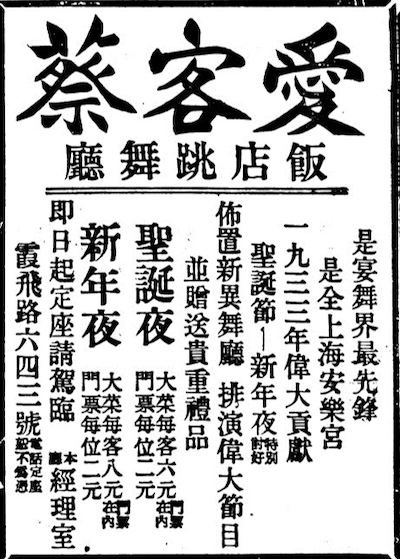 愛客蔡
飯店跳舞廳
是宴舞界最先鋒
是全上海安樂宮
一九三三年偉大貢獻
聖誕節—新年夜 特別討好
佈置新異舞廳 排演偉大節目
並贈送貴重禮品
聖誕夜
大菜每客六元 門票在內
門票每位二元
新年夜
大菜每客八元 門票在內
門票每位二元
即日起定座請駕臨 本廳 經理室
霞飛路六四三號 電話定座 恕不爲憑